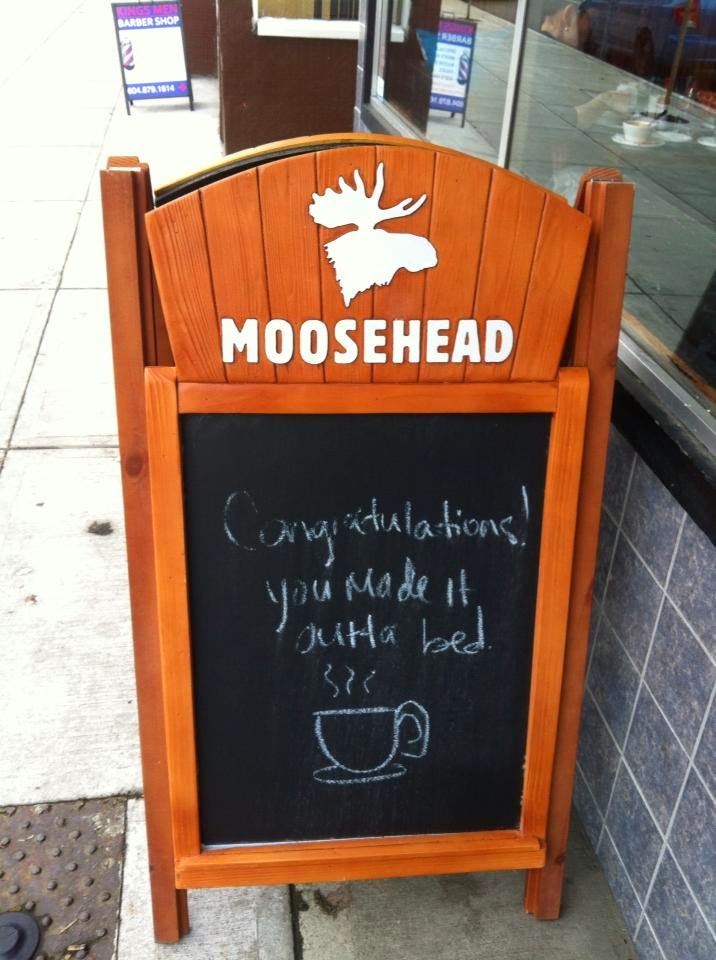 KINGS MEN
BARBER SHOP
604.879.1614
MOOSEHEAD
Congratulations!
you made it
outta bed.